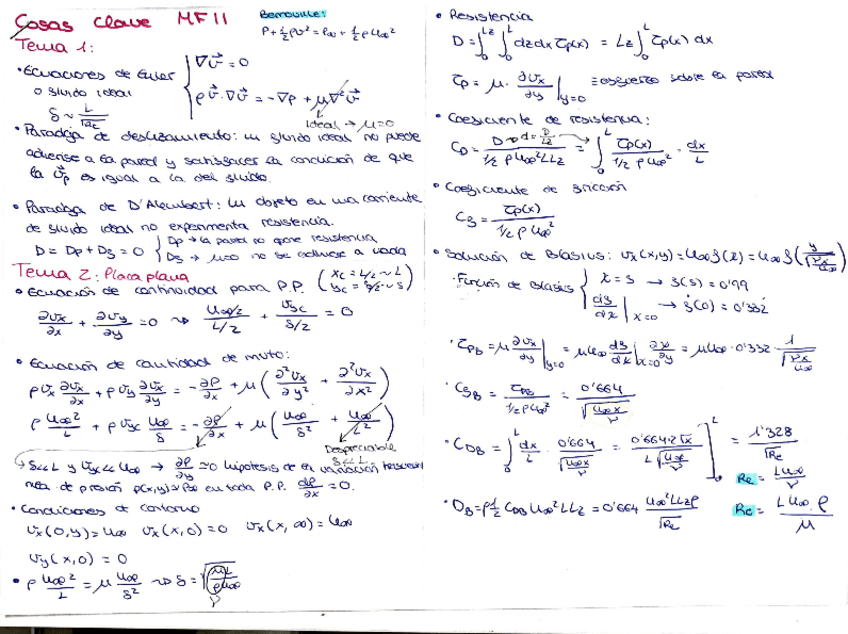 Cosas clave MF11
Bernouille:
P+½ρv²=P∞+½ρu∞²
Tema 1:
• Ecuaciones de Euler
o fluido ideal
∇v⃗=0
ρv⃗·∇v⃗=-∇p+μ∇²v⃗
Ideal → μ=0
δ ~ L/√Re
• Paradoja de deslizamiento: un fluido ideal no puede
adherirse a la pared y satisfacer la condición de que
la v⃗p es igual a la del fluido.
• Paradoja de D'Alembert: un objeto en una corriente
de fluido ideal no experimenta resistencia.
D=Dp+Df=0
Dp → la pared no opone resistencia
Df → μ=0 no se adhiere a nada
Tema 2: Placa plana
• Ecuación de continuidad para P.P.
∂vx/∂x + ∂vy/∂y =0 ⇝ u∞/2 / L/2 + vyc / δ/2 = 0
• Ecuación de cantidad de mvto:
ρvx ∂vx/∂x + ρvy ∂vx/∂y = -∂p/∂x + μ(∂²vx/∂y² + ∂²vx/∂x²)
ρ u∞²/L + ρ vyc u∞/δ = -∂p/∂x + μ(u∞/δ² + u∞/L²)
Despreciable
δ<<L
δ<<L y vyc<<u∞ → ∂p/∂y ≃0 hipótesis de la variación
de presión p(x,y)≃p∞ en toda P.P. dp/∂x =0.
• Condiciones de contorno
vx(0,y)=u∞ vx(x,0)=0 vx(x,∞)=u∞
vy(x,0)=0
• ρ u∞²/L = μ u∞/δ² ⇝ δ=√(μL/ρu∞)
ν
• Resistencia
D=∫₀^Lz ∫₀^L dzdx τp(x) = Lz ∫₀^L τp(x) dx
τp = μ· ∂vx/∂y |y=0 ≡ esfuerzo sobre la pared
• Coeficiente de resistencia:
CD= D → d=D/Lz / ½ρu∞²LLz = ∫₀^L τp(x) / ½ρu∞² · dx/L
• Coeficiente de fricción
Cf= τp(x) / ½ρu∞²
• Solución de Blasius:
· Función de Blasius
→ f(5)=0'99
→ ḟ(0)=0'332
· τpB=μ ∂vx/∂y |y=0
· CfB= τpB / ½ρu∞² = 0'664 / √(u∞x/ν)
· CDB=∫₀^L dx/L · 0'664 / √(u∞x/ν) = 0'664·2√x / L√(u∞/ν) ]₀^L = 1'328/√Re
Re= Lu∞/ν
Re= Lu∞·ρ/μ